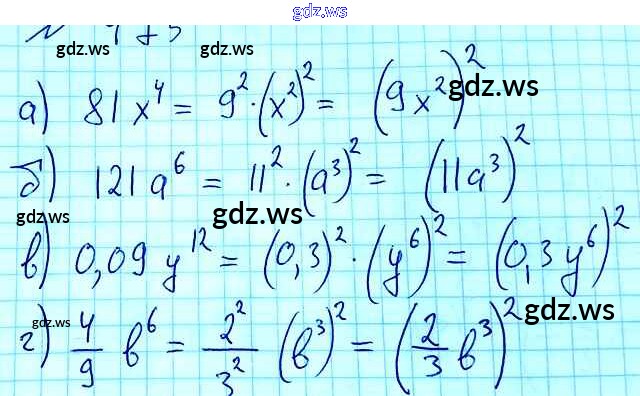 gdz.ws
gdz.ws gdz.ws
а) 81x⁴ = 9²·(x²)² = (9x²)² gdz.ws
б) 121a⁶ = 11²·(a³)² = (11a³)²
gdz.ws gdz.ws
в) 0,09y¹² = (0,3)²·(y⁶)² = (0,3y⁶)²
gdz.ws gdz.ws
г) 4/9 b⁶ = 2²/3² (b³)² = (2/3 b³)²